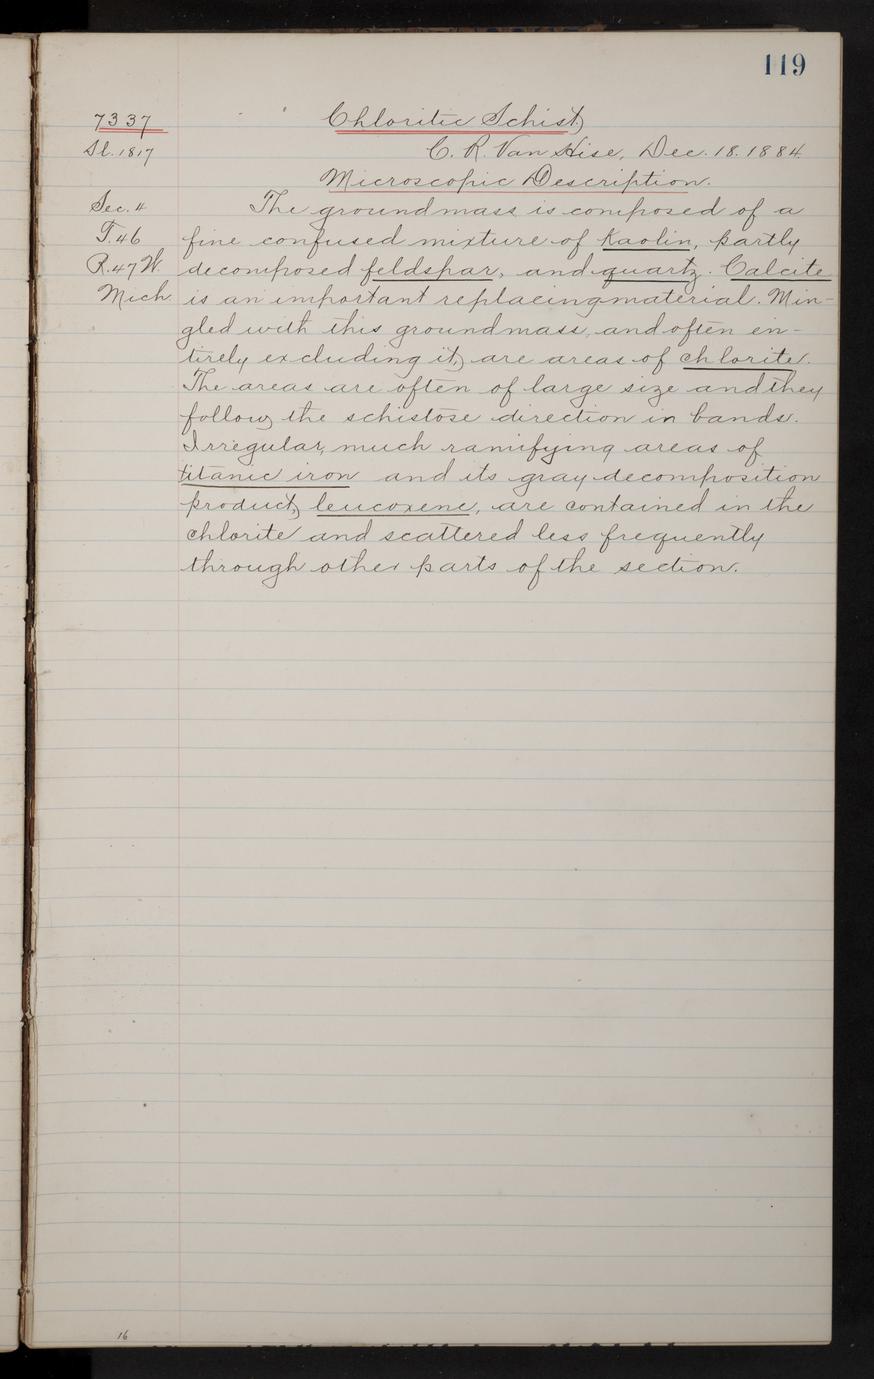 119
7337 Chloritic Schist
Sl. 1817 C. R. Van Hise, Dec. 18. 1884.
Microscopic Description.
Sec. 11 The groundmass is composed of a
T. 46 fine confused mixture of Kaolin, partly
R. 47 W. decomposed feldspar, and quartz. Calcite
Mich. is an important replacing material. Min-
gled with this groundmass, and often en-
tirely excluding it, are areas of chlorite.
The areas are often of large size and they
follow the schistose direction in bands.
Irregular, much ramifying areas of
titanic iron and its gray decomposition
product, leucoxene, are contained in the
chlorite and scattered less frequently
through other parts of the section.
16